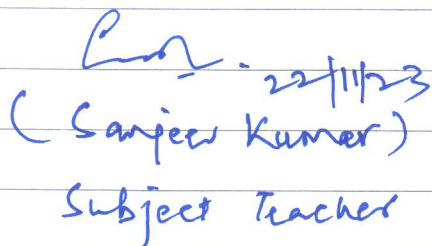 22/11/23
(Sanjeev Kumar)
Subject Teacher